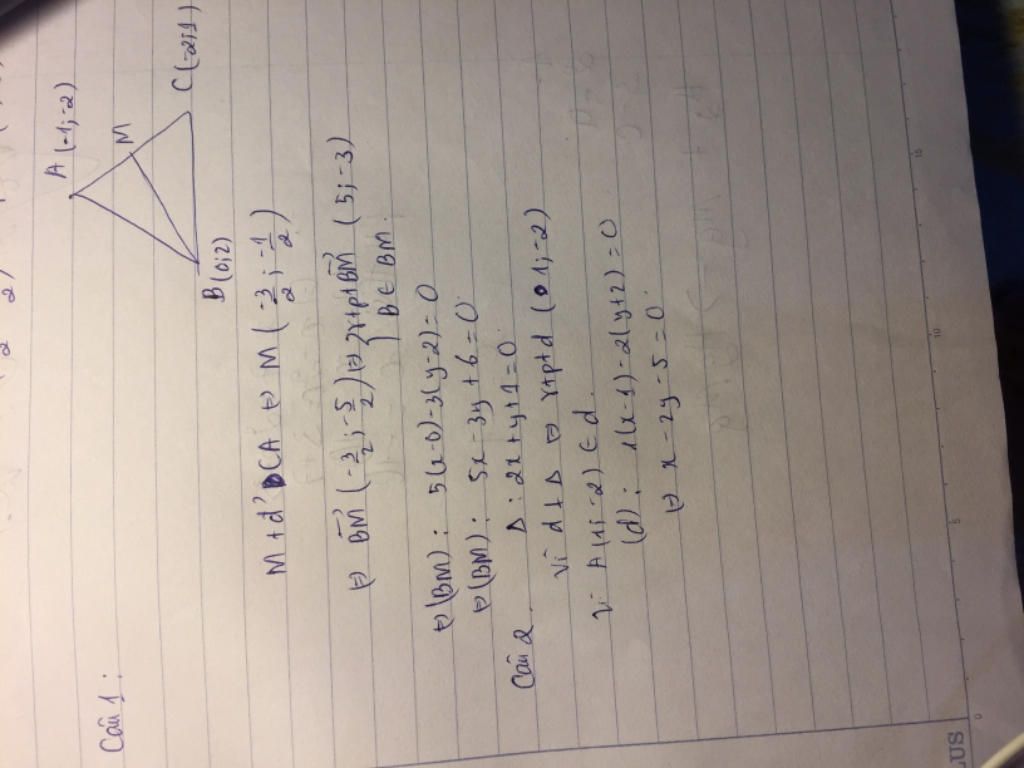 Câu 1:
A (-1;-2)
M
B (0;2)
C (-2;1)
M t.đ CA ⇔ M (-3/2; -1/2)
⇔ BM⃗ (-3/2; -5/2) ⇔ { VTPT BM⃗ (5;-3)
B ∈ BM.
⇔ (BM): 5(x-0)-3(y-2)=0
⇔ (BM): 5x-3y+6=0
Câu 2. Δ: 2x+y+1=0.
Vì d ⊥ Δ ⇔ VTPT d (1;-2)
Vì A(1;-2) ∈ d.
(d): 1(x-1)-2(y+2)=0
⇔ x-2y-5=0.
0
5
10
15